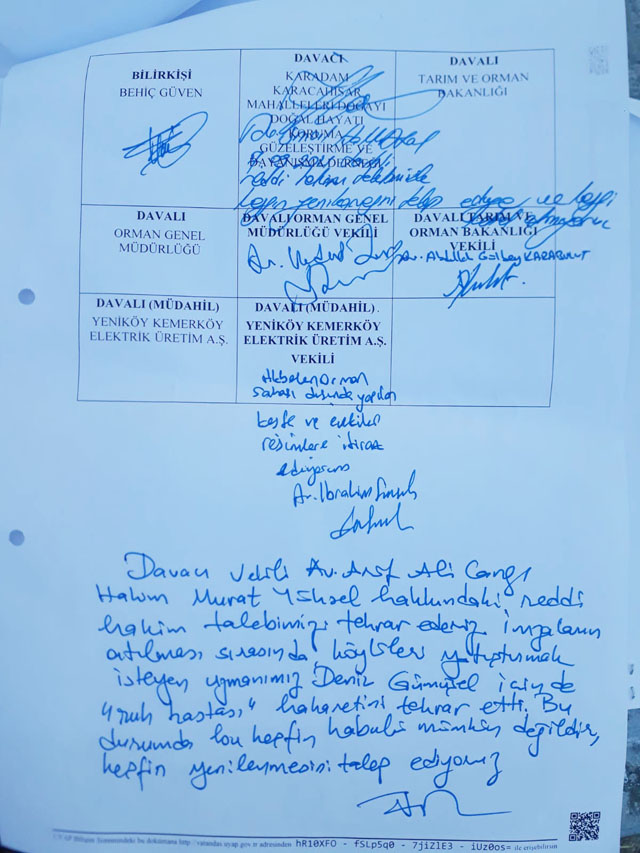 BİLİRKİŞİ
BEHİÇ GÜVEN
DAVACI
KARADAM
KARACAHİSAR
MAHALLELERİ DOĞAYI
DOĞAL HAYATI
KORUMA
GÜZELEŞTİRME VE
DAYANIŞMA DERNEĞİ
DAVALI
TARIM VE ORMAN
BAKANLIĞI
reddi hakim talebimizle
keşfin yenilenmesini talep ediyor ve keşfi
DAVALI
ORMAN GENEL
MÜDÜRLÜĞÜ
DAVALI ORMAN GENEL
MÜDÜRLÜĞÜ VEKİLİ
DAVALI TARIM VE
ORMAN BAKANLIĞI
VEKİLİ
Av.
Av. Gülbey KARABULUT
DAVALI (MÜDAHİL)
YENİKÖY KEMERKÖY
ELEKTRİK ÜRETİM A.Ş.
DAVALI (MÜDAHİL).
YENİKÖY KEMERKÖY
ELEKTRİK ÜRETİM A.Ş.
VEKİLİ
Akbelen Orman
sahası dışında yapılan
keşfe ve çekilen
resimlere itiraz
ediyorum
Av. İbrahim
Davacı Vekili Av. Arif Ali Cangı
Hakim Murat Yüksel hakkındaki reddi
hakim talebimizi tekrar ederiz imzaların
atılması sırasında köylüleri yatıştırmak
isteyen uzmanımız Deniz Gümüşel için de
"ruh hastası" hakaretini tekrar etti. Bu
durumda bu keşfin kabulü mümkün değildir,
keşfin yenilenmesini talep ediyoruz
UYAP Bilişim Sistemindeki bu dokümana http://vatandas.uyap.gov.tr adresinden hR10XFO - fSLp5q0 - 7jiZlE3 - iUz0os= ile erişebilirsin